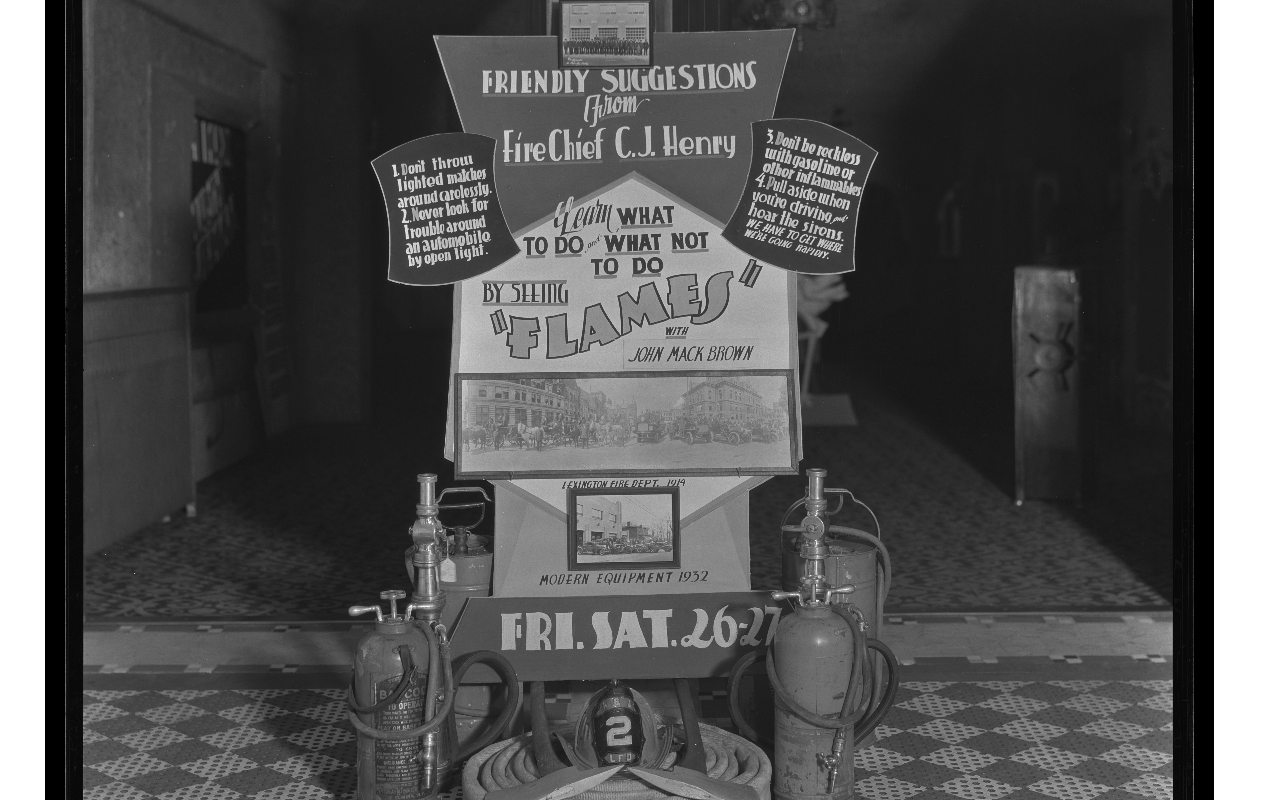 FRIENDLY SUGGESTIONS
From
Fire Chief C.J. Henry
1. Don't throw
lighted matches
around carelessly.
2. Never look for
trouble around
an automobile
by open light.
3. Don't be reckless
with gasoline or
other inflammables
4. Pull aside when
you're driving and
hear the sirens.
WE HAVE TO GET WHERE
WE'RE GOING RAPIDLY.
Learn WHAT
TO DO and WHAT NOT
TO DO
BY SEEING
"FLAMES"
WITH
JOHN MACK BROWN
LEXINGTON FIRE DEPT. 1914
MODERN EQUIPMENT 1932
FRI. SAT. 26-27
2
LFD
TO OPERATE